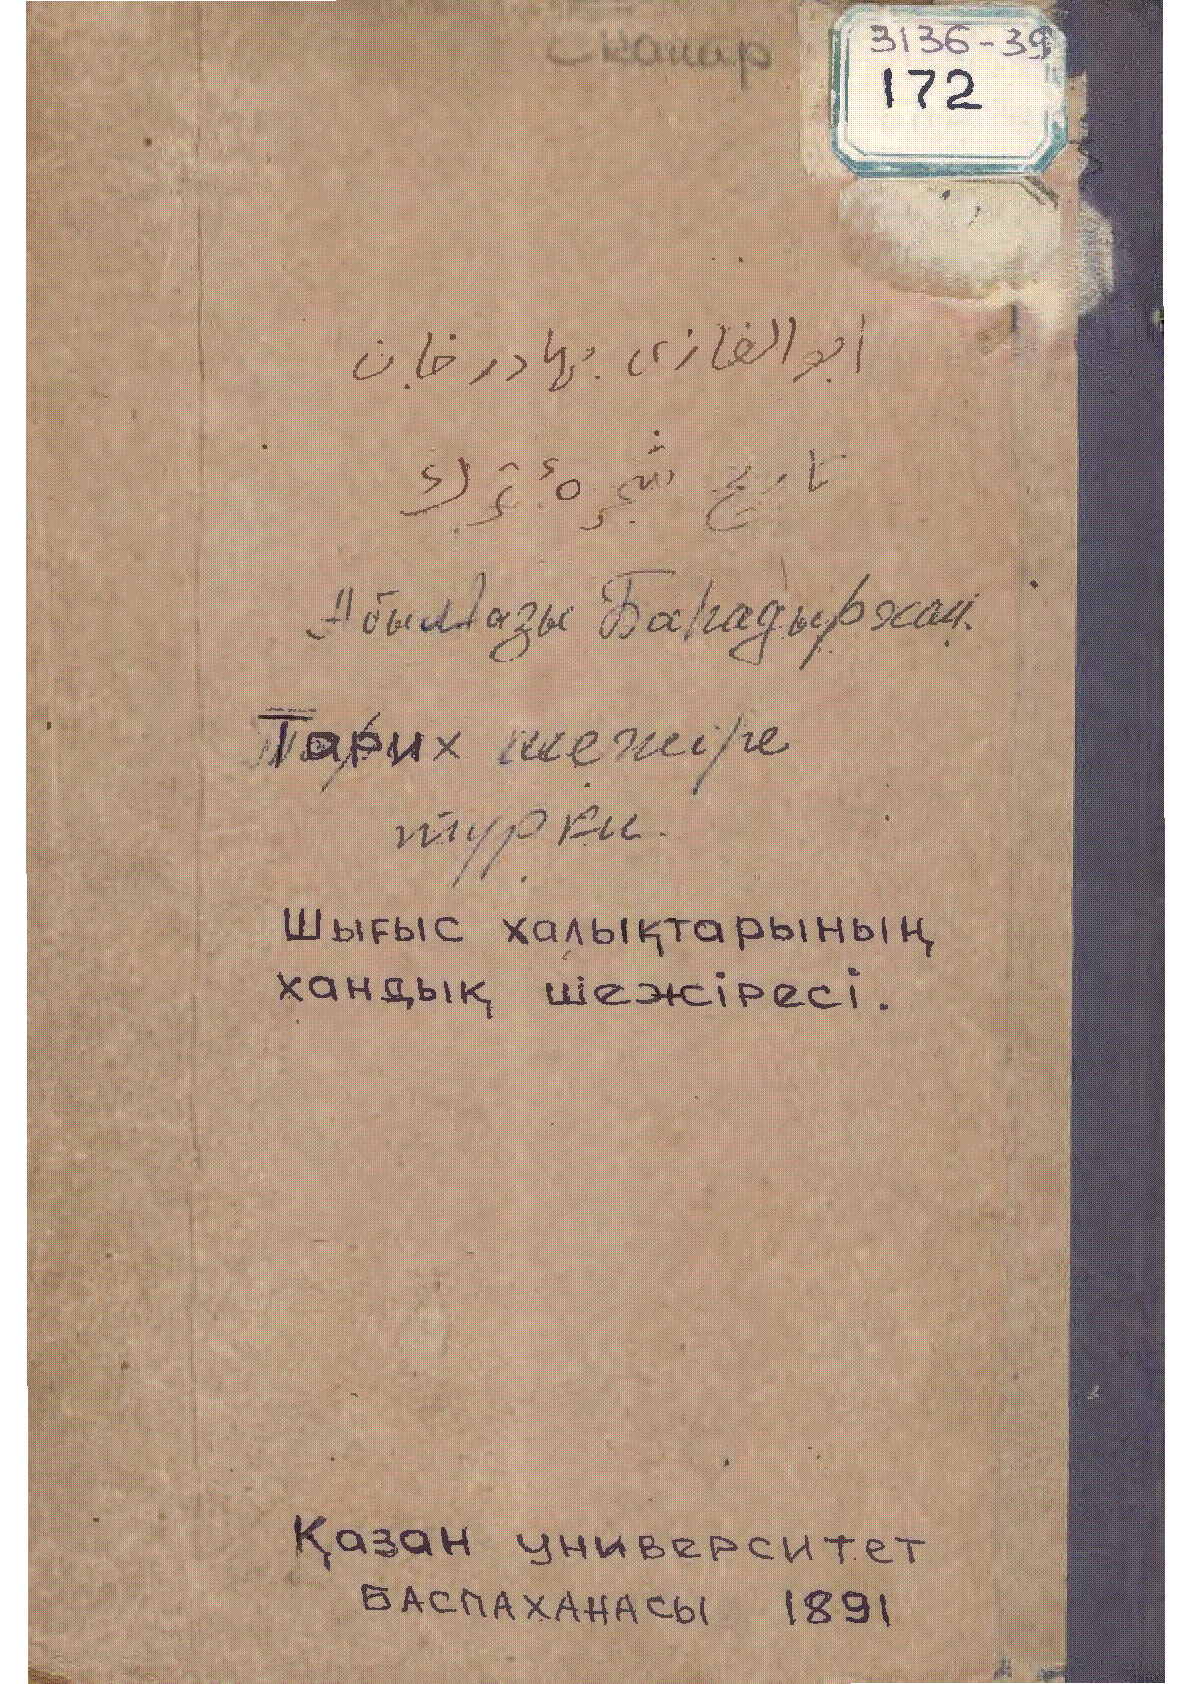 Сканир
3136-39
172
ابوالغازى بهادر خان
تاريخ شجرهٔ ترك
Абылғазы Баһадырхан.
Тарих шежіре
турки.
Шығыс халықтарының
хандық шежіресі.
Қазан университет
БАСПАХАНАСЫ 1891